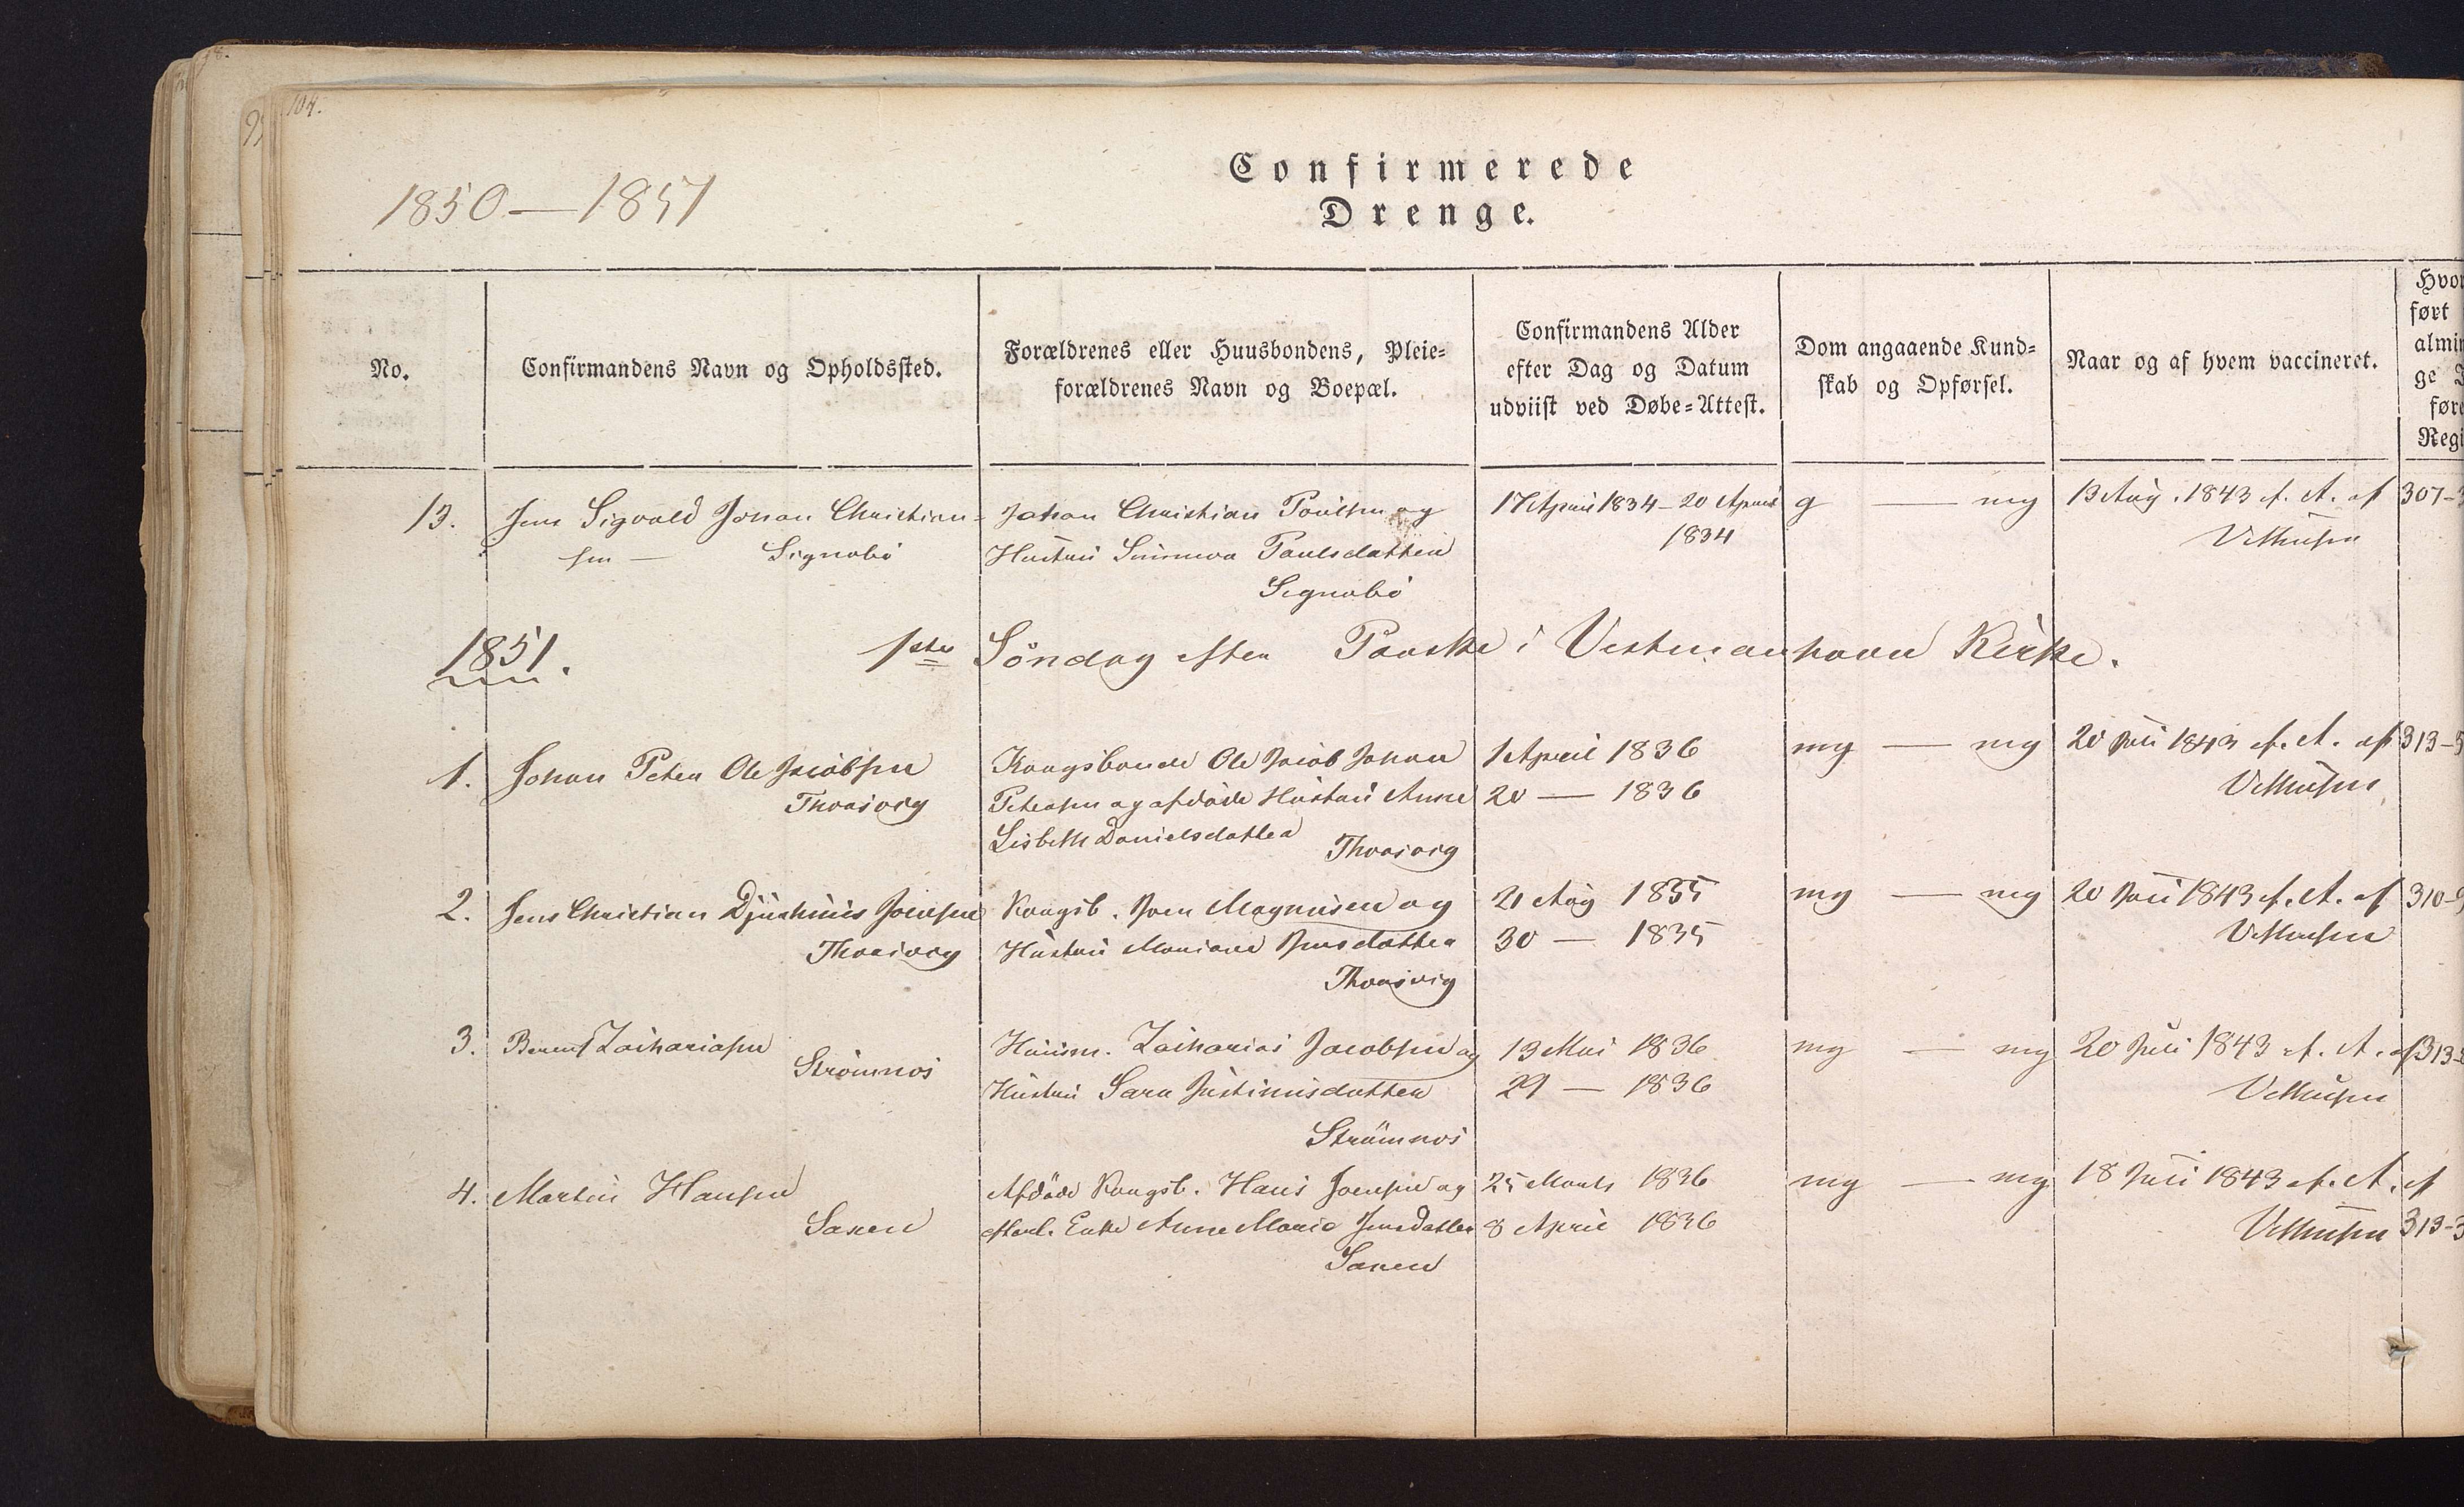 104.
1850 — 1851
Confirmerede
Drenge.
No.
Confirmandens Navn og Opholdssted.
Forældrenes eller Huusbondens, Pleie-
forældrenes Navn og Boepæl.
Confirmandens Alder
efter Dag og Datum
udviist ved Døbe-Attest.
Dom angaaende Kund-
skab og Opførsel.
Naar og af hvem vaccineret.
Hvor
ført
almin
ge J
føre
Regi
13. Jens Sigvald Johan Christian-
sen — Signabö
Johan Christian Poulsen og
Hustru Sunneva Paulsdatter
Signabö
17 April 1834 - 20 April
1834
g — mg
13 Aug. 1843 e. A. af
307-
1851. 1ste Söndag efter Paaske i Vestmanhavn Kirke.
1. Johan Peter Ole Jacobsen
Thorsvig
Kongsbonde Ole Jacob Johan
Petersen og afdöde Hustru Anne
Lisbeth Danielsdatter
Thorsvig
1 April 1836
20 — 1836
mg — mg
20 Juli 1843 e. A. af
313-5
2. Jens Christian Djurhuus Joensen
Thorsvig
Kongsb. Joen Magnusen og
Hustru Mariane Jensdatter
Thorsvig
21 Aug 1835
30 — 1835
mg — mg
20 Juli 1843 e. A. af
310-9
3. Berent Zachariasen
Strömnæs
Huusm. Zacharias Jacobsen og
Hustru Sara Justinusdatter
Strömnæs
13 Mai 1836
29 — 1836
mg — mg
20 Juli 1843 e. A. af
313-
4. Martin Hansen
Saxen
Afdöde Kongsb. Hans Joensen og
efterl. Enke Anne Marie Jensdatter
Saxen
25 Marts 1836
8 April 1836
mg — mg
18 Juli 1843 e. A. af
313-3